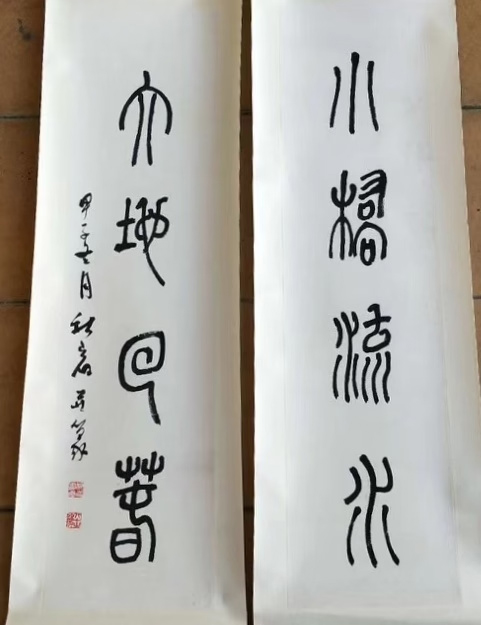 小橋流水
大地回春
甲子七月秋